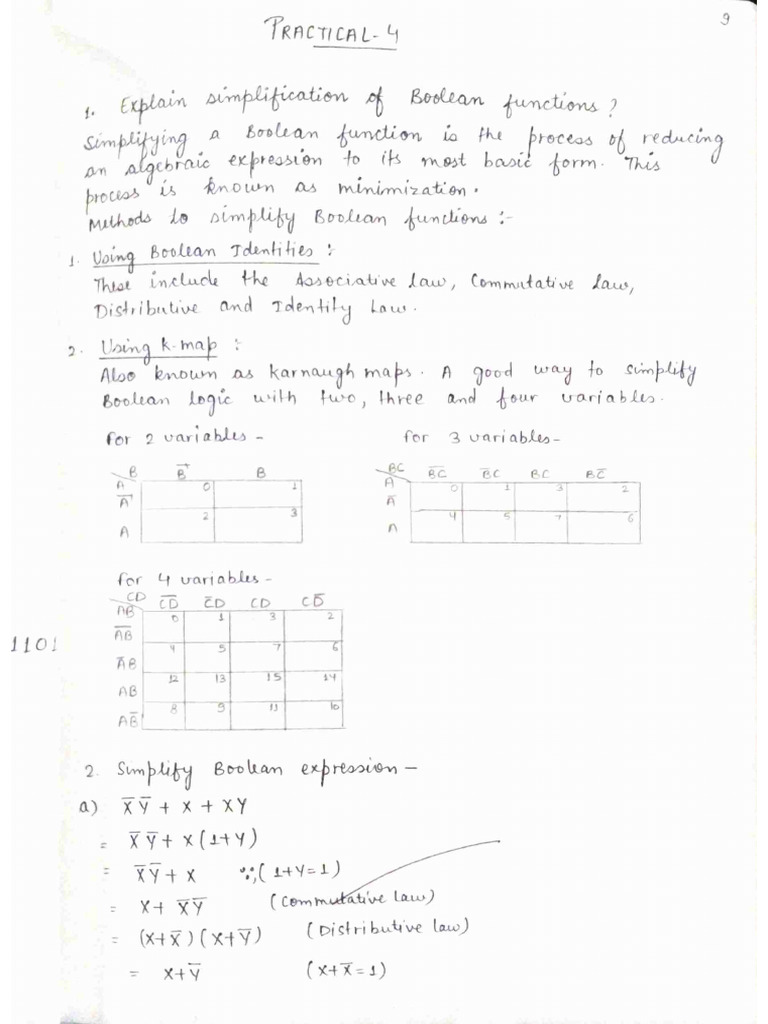 9
PRACTICAL-4
1. Explain simplification of Boolean functions?
Simplifying a Boolean function is the process of reducing
an algebraic expression to its most basic form. This
process is known as minimization.
Methods to simplify Boolean functions :-
1. Using Boolean Identities :-
These include the Associative Law, Commutative Law,
Distributive and Identity Law.
2. Using K-map :-
Also known as Karnaugh maps. A good way to simplify
Boolean logic with two, three and four variables.
for 2 variables - for 3 variables-
B B̅ B
A 0 1
A̅
2 3
A
BC B̅C̅ B̅C BC BC̅
A 0 1 3 2
A̅
4 5 7 6
A
for 4 variables -
CD C̅D̅ C̅D CD CD̅
AB 0 1 3 2
A̅B̅
1101
4 5 7 6
A̅B
12 13 15 14
AB
8 9 11 10
AB̅
2. Simplify Boolean expression -
a) X̅Y̅ + X + XY
= X̅Y̅ + X(1+Y)
= X̅Y̅ + X ∵(1+Y=1)
= X + X̅Y̅ (Commutative law)
= (X+X̅)(X+Y̅) (Distributive law)
= X+Y̅ (X+X̅=1)